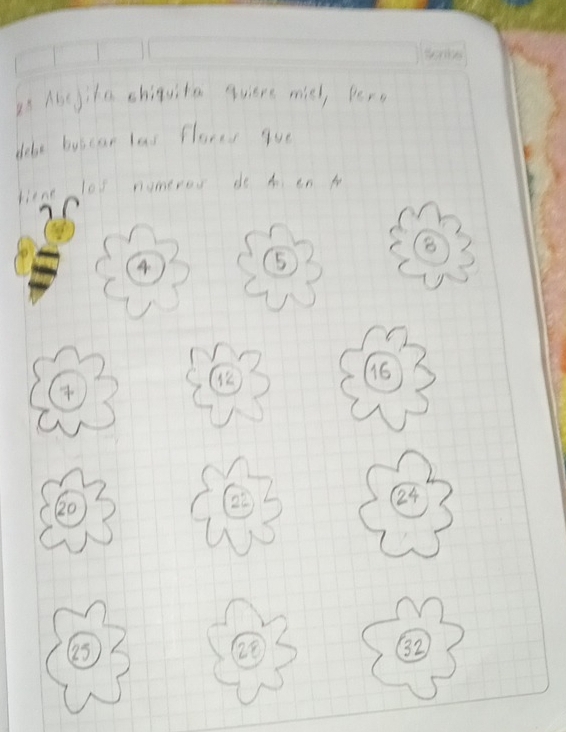 Scribe
2.- Abejita chiquita quiere miel, pero
debe buscar las flores que
tiene los numeros de 4 en 4
4 5 8
7 12 16
20 22 24
25 28 32